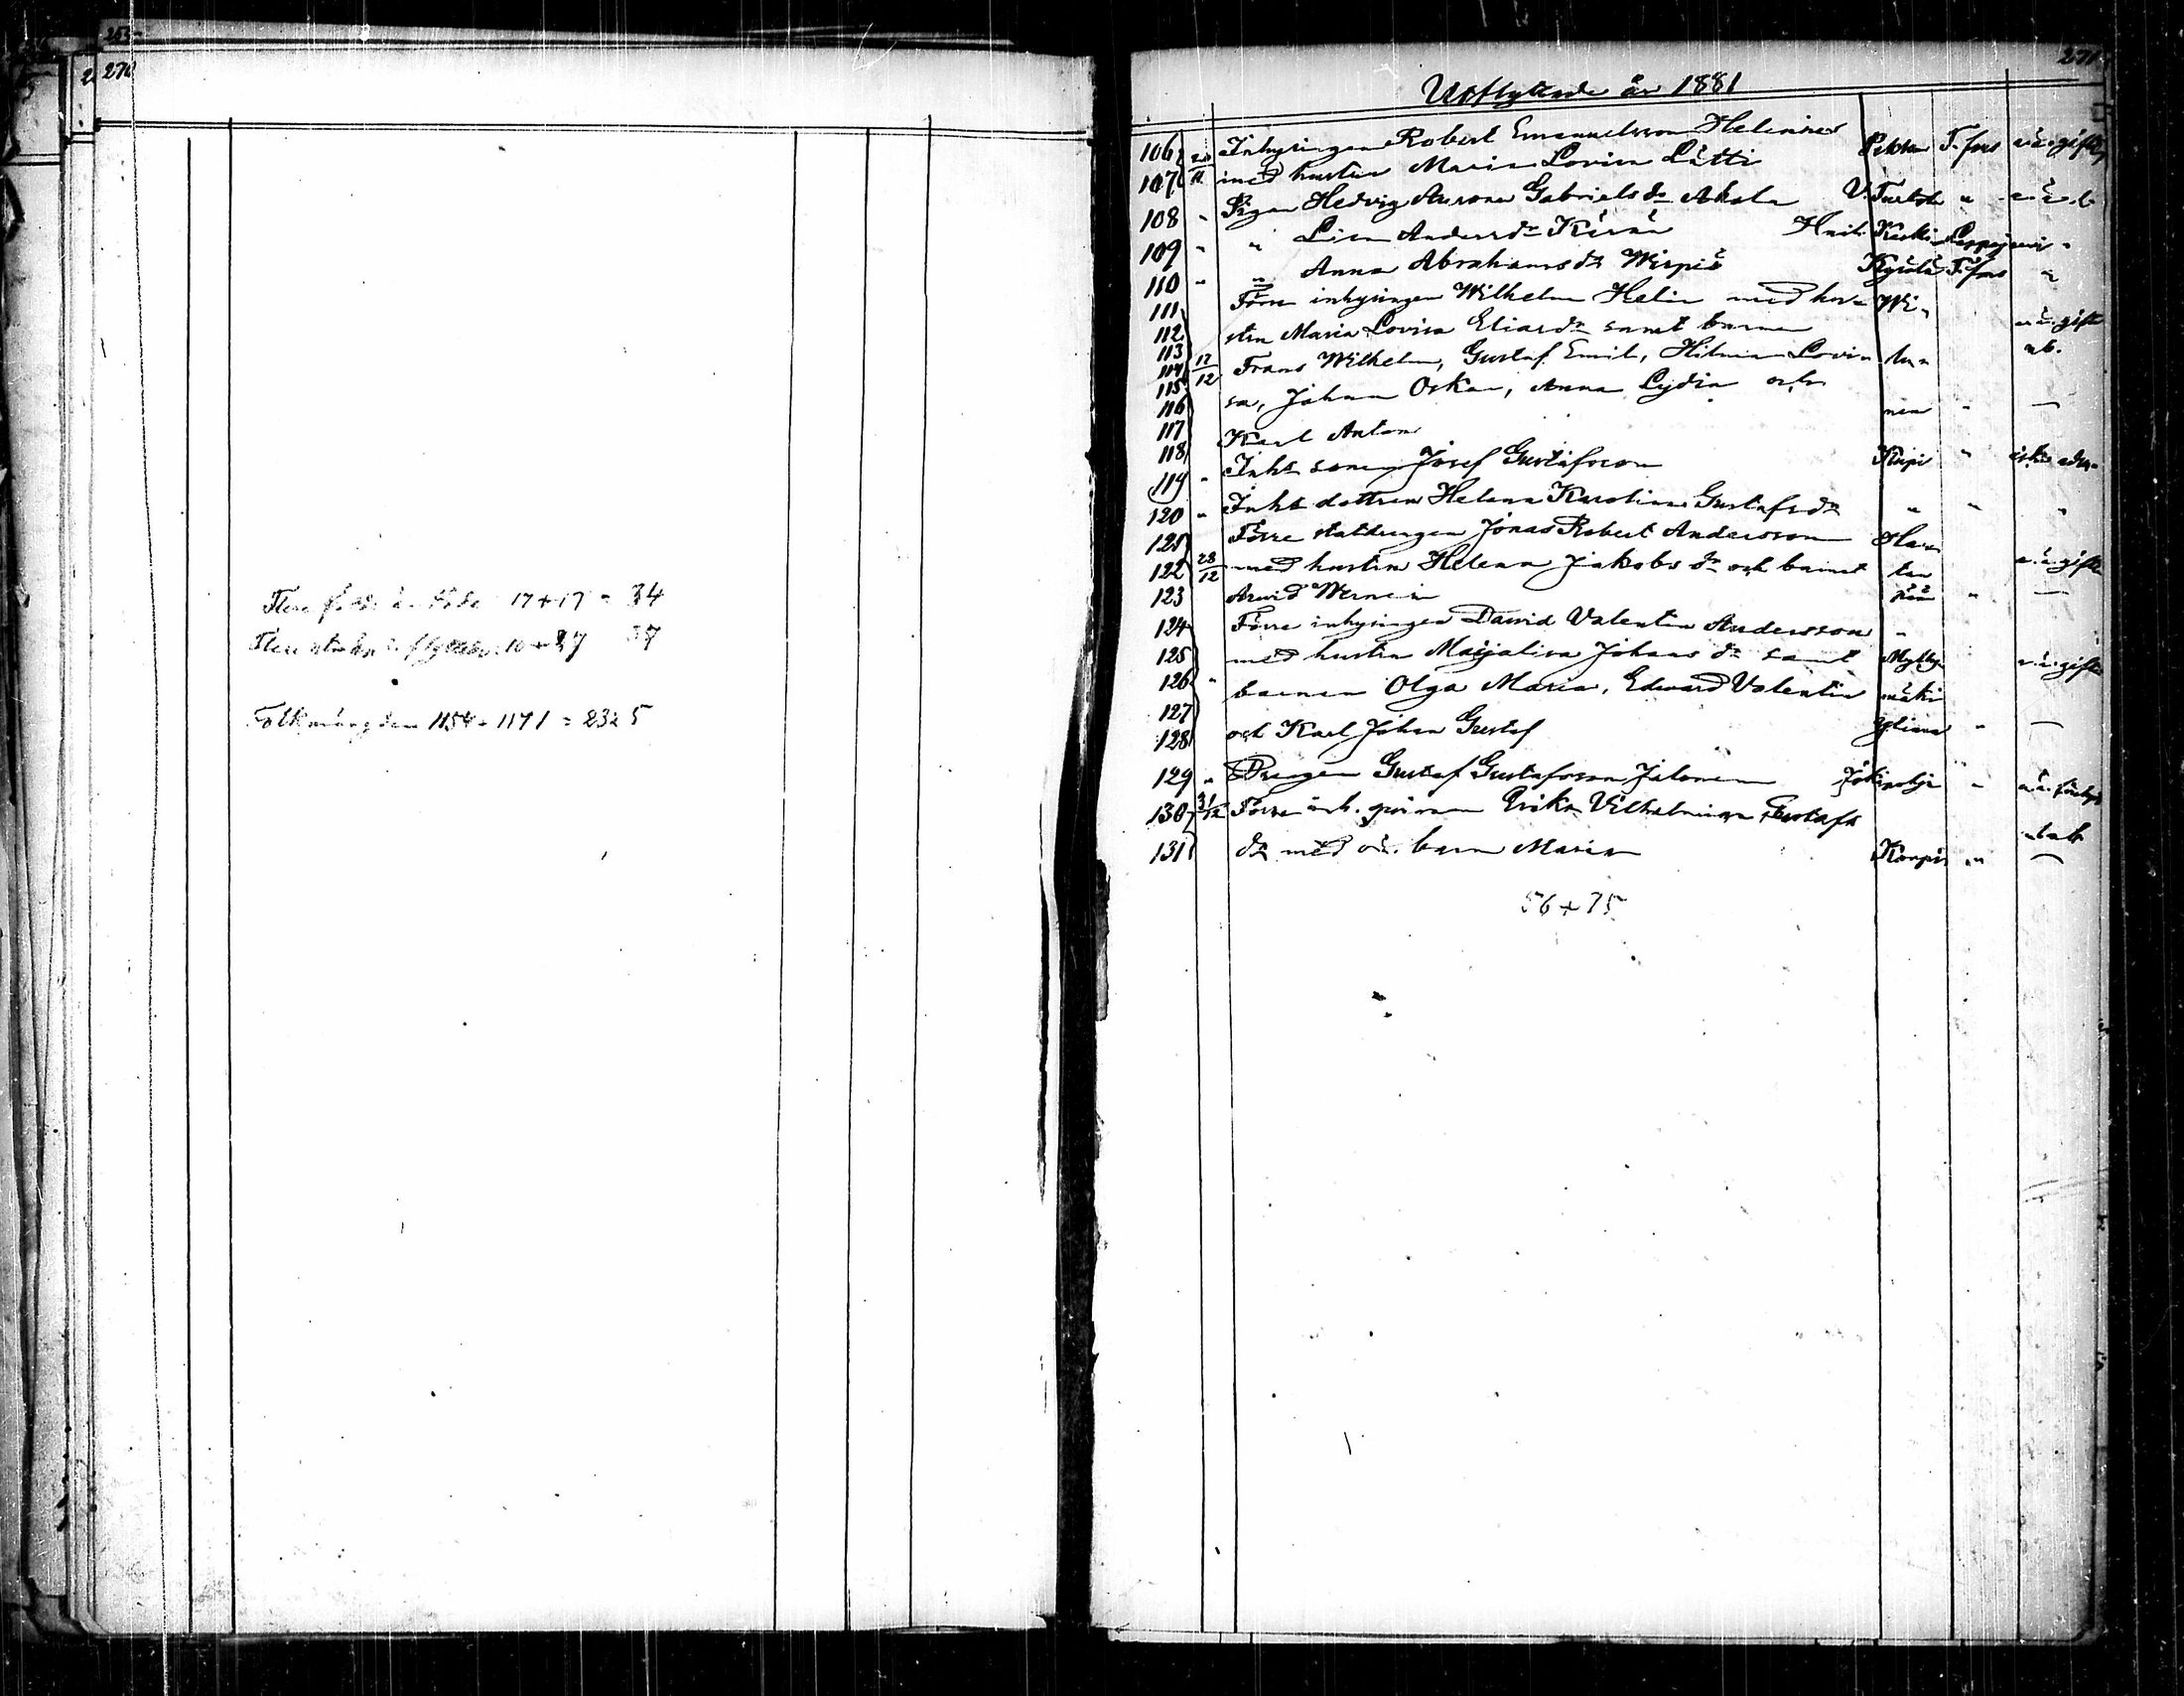 270
Flere födde än döde 17+17 = 34
Flere utflyttade 10+27 37
Folkmängden 1154+1171 = 2325
271
Utflyttade år 1881
106 20/11 Inhysingen Robert Emanuelsson Helenius Pekka T:fors n.ä. gifta
107 med hustru Maria Lovisa Lätti
108 " Pigan Hedvig Aurora Gabrielsdr Akola V. Turtola "
109 " " Lisa Andersdr Keski "
110 " " Anna Abrahamsdr Wirpiö Kyrölä T:fors "
111 Förre inhysingen Wilhelm Helin med hu- Wi-
112 strn Maria Lovisa Eliasdr samt barnen n.ä. gifta
113
114 17/12 Frans Wilhelm, Gustaf Emil, Hilma Lovi-
115
116 sa, Johan Oskar, Anna Lydia och nen " —
117
118 Karl Anton
119 " Inhs sonen Josef Gustafsson Korpi "
120 " Inhs dottren Helena Karolina Gustafsdr " " "
121 Förre statdrengen Jonas Robert Andersson
122 28/12 med hustru Helena Jakobsdr och barnet n.ä. gifta
123 Arvid Werner " —
124 Förre inhysingen David Valentin Andersson "
125 med hustru Maijalisa Johansdr samt Mylly- n.ä. gifta
126 " barnen Olga Maria, Edvard Valentin mäki
127
128 och Karl Johan Gustaf " —
129 " Drengen Gustaf Gustafsson Jalonen Jokipohja "
130 31/12 Förre inh. qvinnan Erika Vilhelmina Gustafs
131 dr med oä. barn Maria Korpi " —
56+75